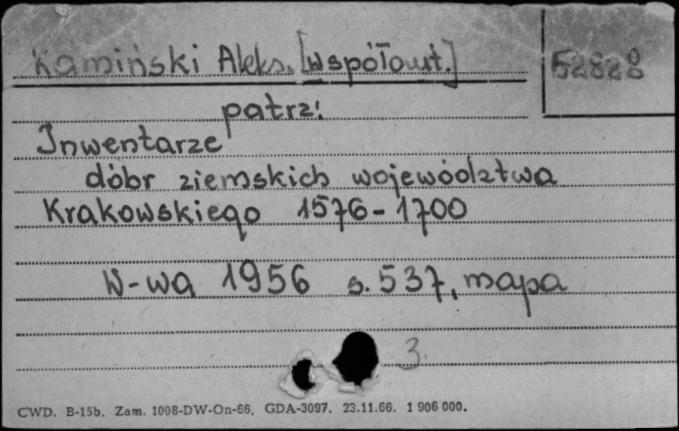 Kamiński Aleks. [współaut.] 52828
patrz:
Inwentarze
dóbr ziemskich województwa
Krakowskiego 1576-1700
W-wa 1956 s. 537, mapa
3
CWD. B-15b. Zam. 1008-DW-On-66. GDA-3097. 23.11.66. 1 906 000.